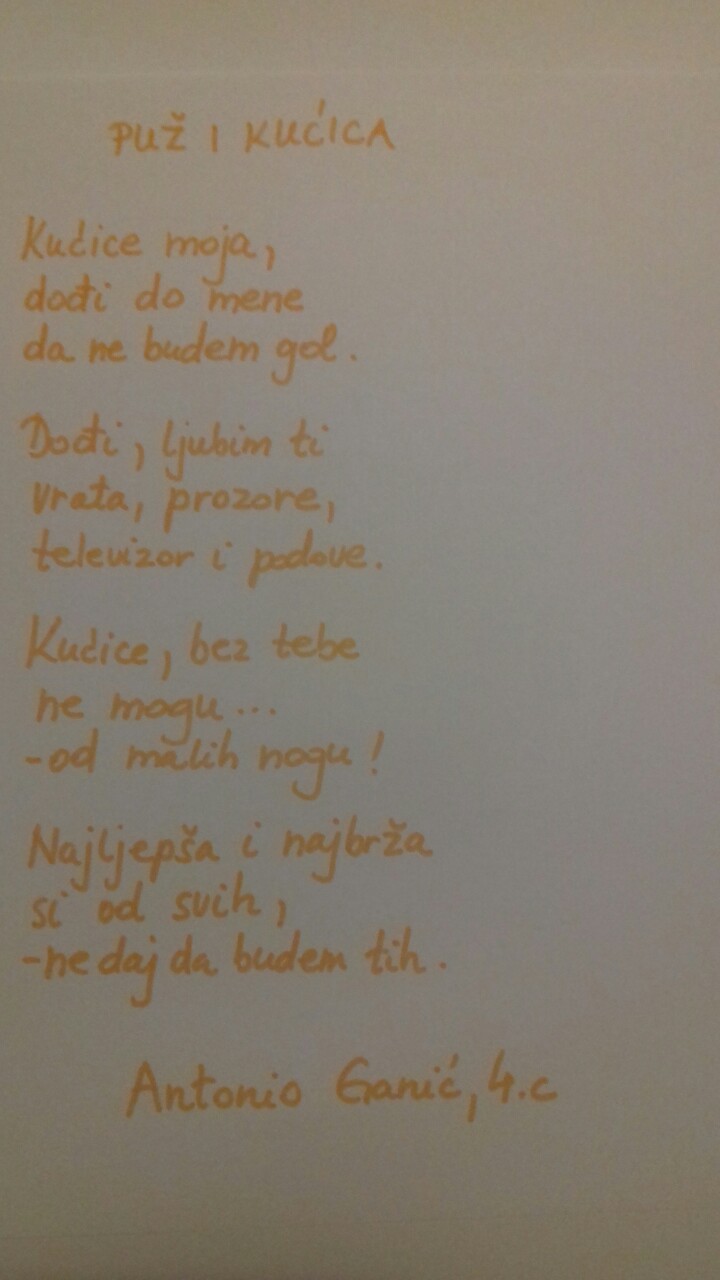 PUŽ I KUĆICA
Kućice moja,
dođi do mene
da ne budem gol.
Dođi, ljubim ti
vrata, prozore,
televizor i podove.
Kućice, bez tebe
ne mogu...
-od malih nogu!
Najljepša i najbrža
si od svih,
-ne daj da budem tih.
Antonio Ganić, 4.c